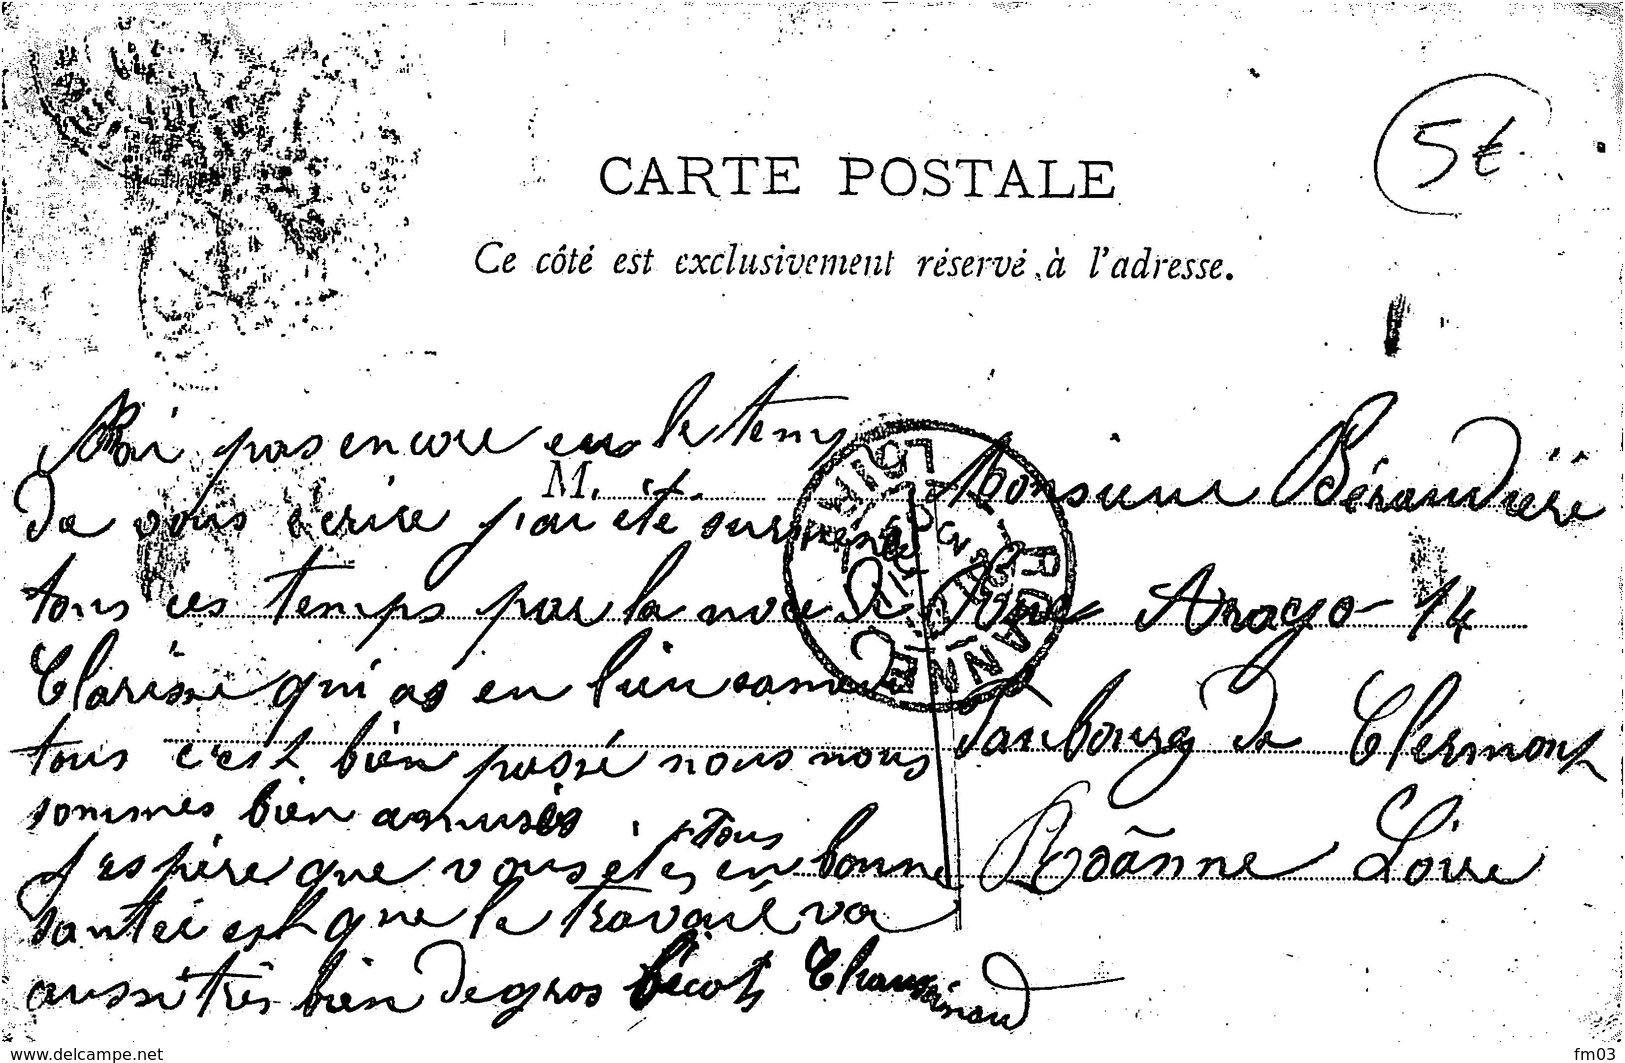 CARTE POSTALE
5€
Ce côté est exclusivement réservé à l'adresse.
M.
Ai pas encore eu le temps
de vous écrire j'ai été surmené
tous ces temps par la noce de
Clarisse qui as eu lieu samedi
tous c'est bien passé nous nous
sommes bien amusés
j'espère que vous êtes tous en bonne
santéé est que le travail va
aussi très bien de gros bécots
Monsieur Béraudière
Rue Arago 14
Faubourg de Clermont
Roanne Loire
ROANNE
LOIRE
www.delcampe.net
fm03